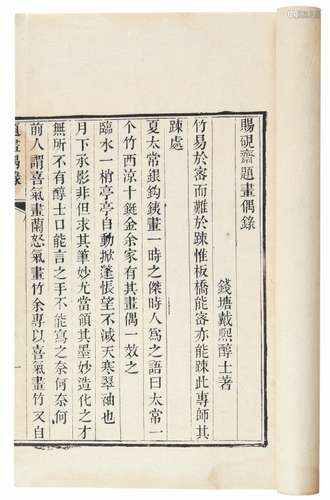 賜硯齋題畫偶錄
錢塘戴熙醇士著
竹易於密而難於踈惟板橋能密亦能踈此專師其
踈處
夏太常銀鉤銕畫一時之傑時人為之語曰太常一
个竹西涼十鋌金余家有其畫偶一效之
臨水一梢亭亭自動掀篷悵望不減天寒翠袖也
月下承影非但求其筆妙尤當領其墨妙造化之才
無所不有醇士口能言之手不能寫之奈何奈何
前人謂喜氣畫蘭怒氣畫竹余專以喜氣畫竹又自
一